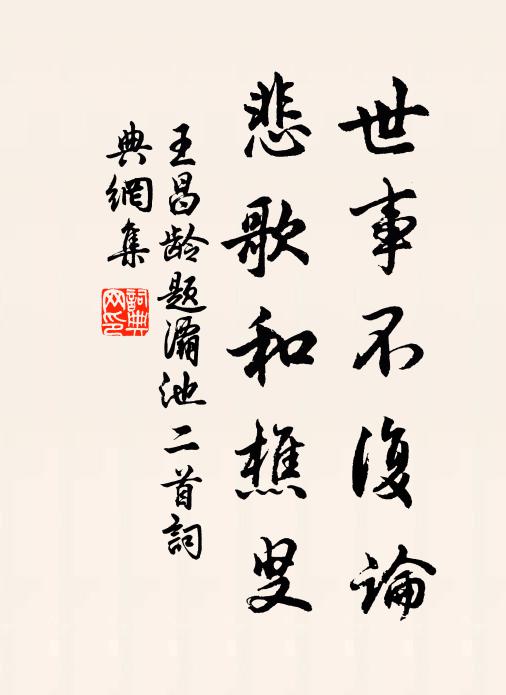 世事不復論
悲歌和樵叟
王昌齡題灞池二首詞
典網集
詞典網印